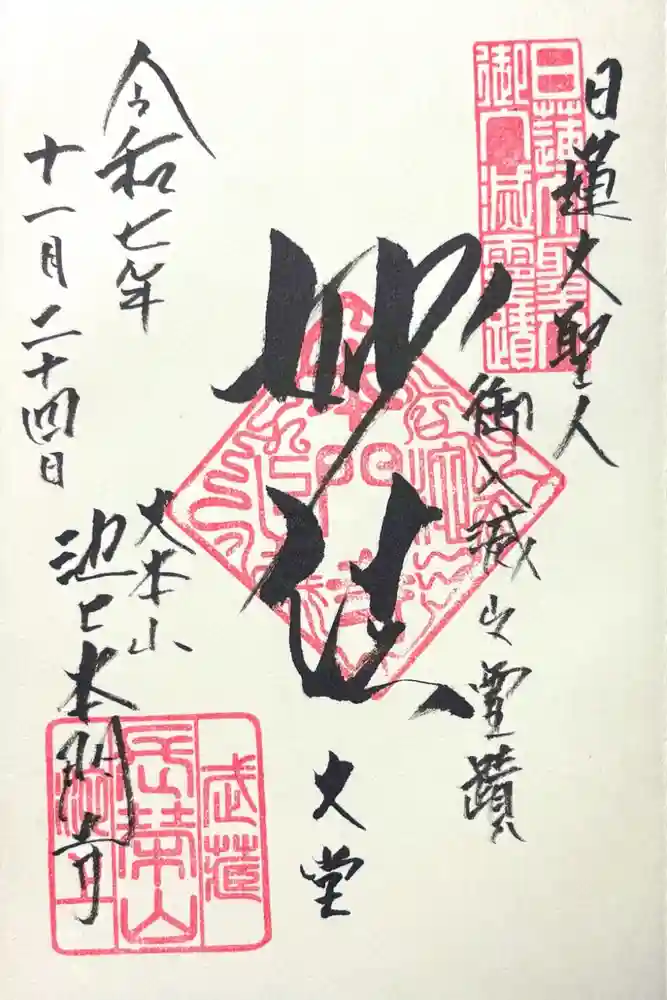 日蓮大聖人
御入滅之霊蹟
日蓮大聖人
御入滅霊蹟
妙法
大堂
大本山
池上本門寺
武蔵
長栄山
池上
令和七年
十一月二十四日